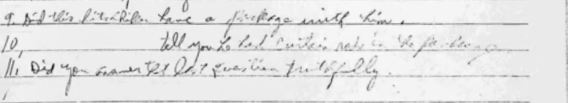 9. Did this have a package with him.
10, tell you he had certain in the package.
11, Did you answer that last question truthfully.